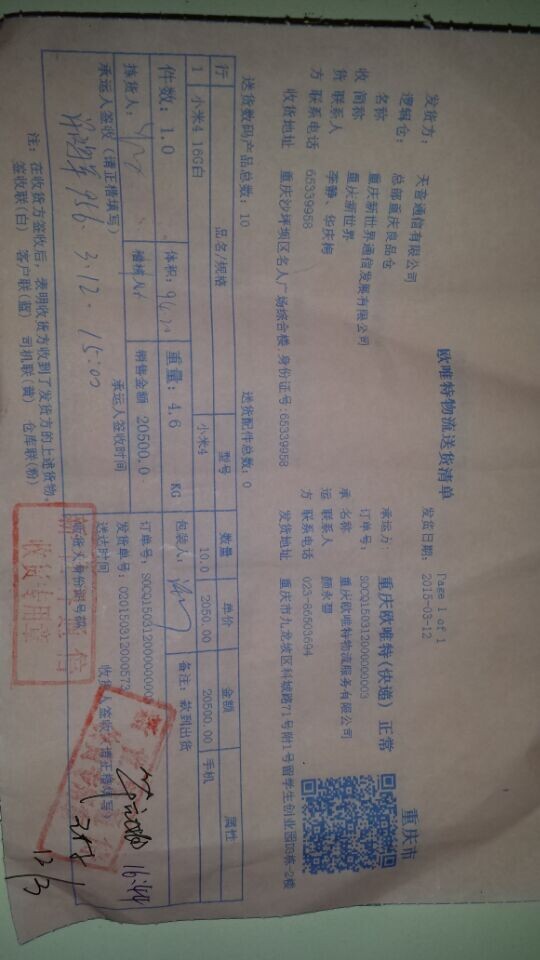 欧唯特物流送货清单
Page 1 of 1
发货日期: 2015-03-12
重庆市
发货方: 天音通信有限公司
逻辑仓: 总部重庆良品仓
承运方: 重庆欧唯特(快递) 正常
订单号: SOCQ15031200000003
收货方
名称 重庆新世界通信发展有限公司
简称 重庆新世界
联系人 李静、华庆梅
联系电话 65339958
收货地址 重庆沙坪坝区名人广场综合楼 身份证号:65339958
承运方
名称 重庆欧唯特物流服务有限公司
联系人 顾永碧
联系电话 023-86503694
发货地址 重庆市九龙坡区科城路71号附1号留学生创业园D3栋-2楼
送货数码产品总数: 10 送货配件总数: 0
行 品名/规格 型号 数量 单价 金额 属性
1 小米4 16G白 小米4 10.0 2050.00 20500.00 手机
件数: 1.0 体积: 重量: 4.6 KG 包装人: 备注: 款到出货
拣货人: 稽核人: 销售金额 20500.0 订单号: SOCQ150312000000
发货单号: 020150312000573
承运人签收(请正楷填写) 承运人签收时间 送达时间 收货人签收(请正楷填写)
956. 3.12. 15:00
收货人身份证号码
16:44
12/3
收货专用章
注: 在收货方签收后, 表明收货方收到了发货方的上述货物。
签收联(白) 客户联(蓝) 司机联(黄) 仓库联(粉)